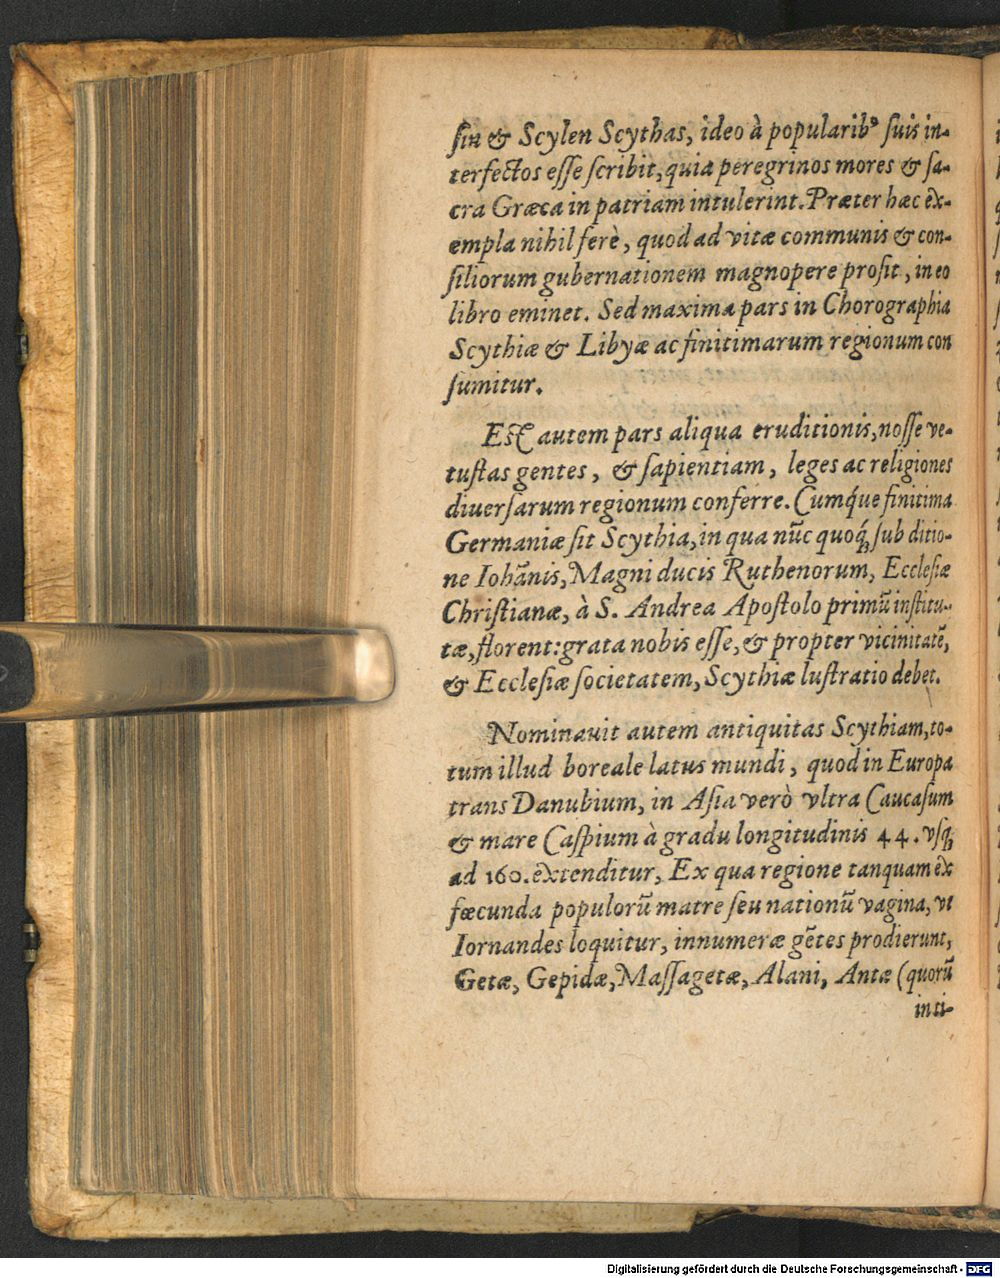 ſin & Scylen Scythas, ideo à popularibꝰ ſuis in-
terfectos eſſe ſcribit, quia peregrinos mores & ſa-
cra Græca in patriam intulerint. Præter hæc ex-
empla nihil ferè, quod ad vitæ communis & con-
ſiliorum gubernationem magnopere profit, in eo
libro eminet. Sed maxima pars in Chorographia
Scythiæ & Libyæ ac finitimarum regionum con
ſumitur.
Eſt autem pars aliqua eruditionis, noſſe ve-
tuſtas gentes, & ſapientiam, leges ac religiones
diuerſarum regionum conferre. Cumq́ue finitima
Germaniæ ſit Scythia, in qua nūc quoq́; ſub ditio-
ne Iohānis, Magni ducis Ruthenorum, Eccleſiæ
Chriſtianæ, à S. Andrea Apoſtolo primū inſtitu-
tæ, florent: grata nobis eſſe, & propter vicinitatē,
& Eccleſiæ ſocietatem, Scythiæ luſtratio debet.
Nominauit autem antiquitas Scythiam, to-
tum illud boreale latus mundi, quod in Europa
trans Danubium, in Aſia verò vltra Caucaſum
& mare Caſpium à gradu longitudinis 44. vſq;
ad 160. extenditur, Ex qua regione tanquam ex
fœcunda populorū matre ſeu nationū vagina, vt
Iornandes loquitur, innumeræ gētes prodierunt,
Getæ, Gepidæ, Maſſagetæ, Alani, Antæ (quorū
in ti-
Digitalisierung gefördert durch die Deutsche Forschungsgemeinschaft - DFG